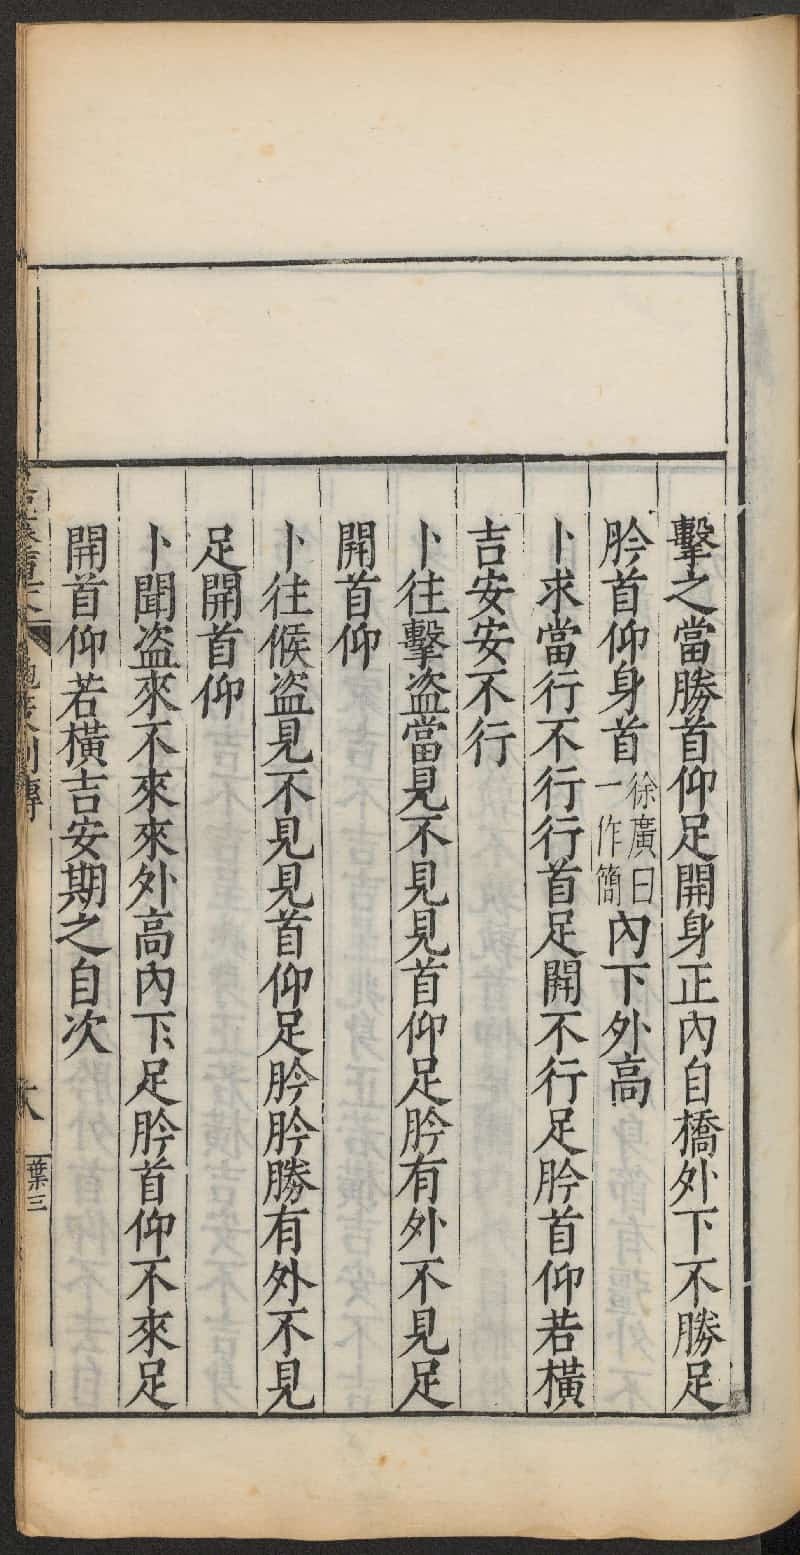 擊之當勝首仰足開身正內自橋外下不勝足
肣首仰身首徐廣曰一作簡內下外高
卜求當行不行行首足開不行足肣首仰若橫
吉安安不行
卜往擊盜當見不見見首仰足肣有外不見足
開首仰
卜往候盜見不見見首仰足肣肣勝有外不見
足開首仰
卜聞盜來不來來外高內下足肣首仰不來足
開首仰若橫吉安期之自次
葉三